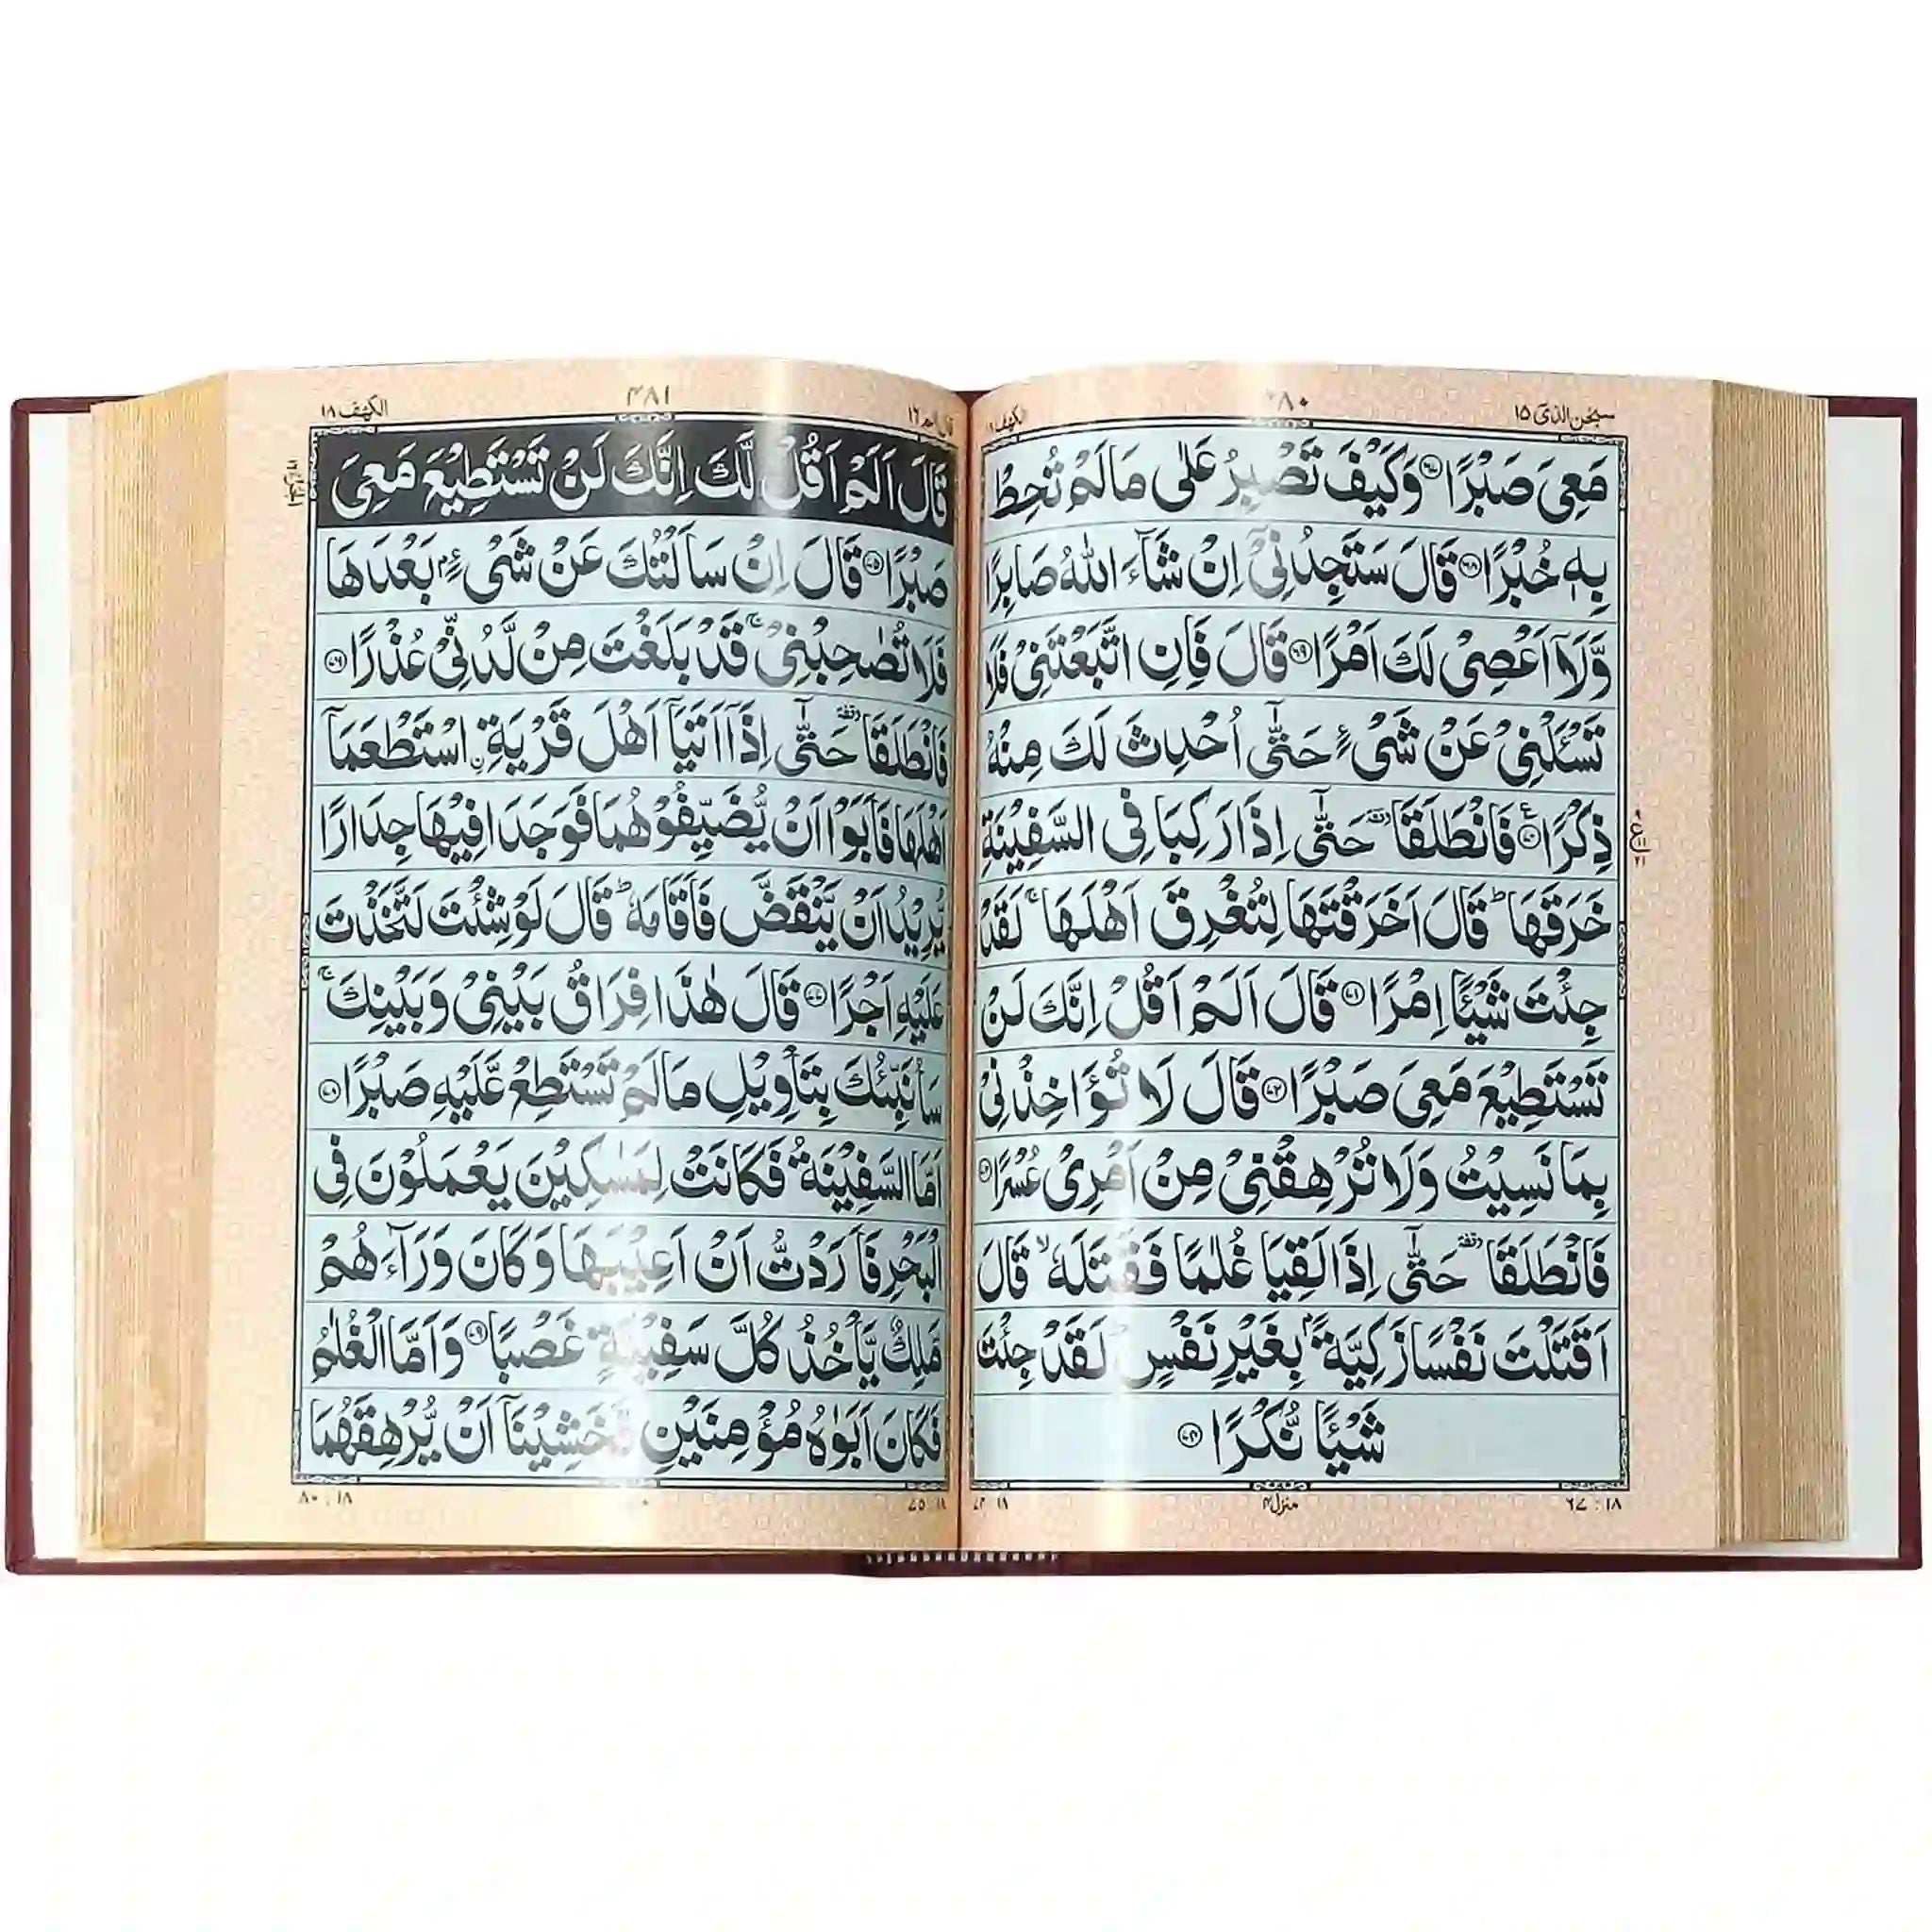 سبحن الذی ١٥
الكهف
مَعِیَ صَبْرًا ﴿٦٧﴾ وَكَیْفَ تَصْبِرُ عَلٰی مَا لَمْ تُحِطْ
بِهٖ خُبْرًا ﴿٦٨﴾ قَالَ سَتَجِدُنِیْۤ اِنْ شَآءَ اللّٰهُ صَابِرًا
وَّلَاۤ اَعْصِیْ لَكَ اَمْرًا ﴿٦٩﴾ قَالَ فَاِنِ اتَّبَعْتَنِیْ فَلَا
تَسْـَٔلْنِیْ عَنْ شَیْءٍ حَتّٰۤی اُحْدِثَ لَكَ مِنْهُ
ذِكْرًا ﴿٧٠﴾ فَانْطَلَقَا وقفة حَتّٰۤی اِذَا رَكِبَا فِی السَّفِیْنَةِ
خَرَقَهَا ؕ قَالَ اَخَرَقْتَهَا لِتُغْرِقَ اَهْلَهَا ۚ لَقَدْ
جِئْتَ شَیْـًٔا اِمْرًا ﴿٧١﴾ قَالَ اَلَمْ اَقُلْ اِنَّكَ لَنْ
تَسْتَطِیْعَ مَعِیَ صَبْرًا ﴿٧٢﴾ قَالَ لَا تُؤَاخِذْنِیْ
بِمَا نَسِیْتُ وَلَا تُرْهِقْنِیْ مِنْ اَمْرِیْ عُسْرًا ﴿٧٣﴾
فَانْطَلَقَا وقفة حَتّٰۤی اِذَا لَقِیَا غُلٰمًا فَقَتَلَهٗ ۙ قَالَ
اَقَتَلْتَ نَفْسًا زَكِیَّةًۢ بِغَیْرِ نَفْسٍ ؕ لَقَدْ جِئْتَ
شَیْـًٔا نُّكْرًا ﴿٧٤﴾
١٨ : ٦٧
منزل ٤
قال الم ١٦
٣٨١
الكهف ١٨
قَالَ اَلَمْ اَقُلْ لَّكَ اِنَّكَ لَنْ تَسْتَطِیْعَ مَعِیَ
صَبْرًا ﴿٧٥﴾ قَالَ اِنْ سَاَلْتُكَ عَنْ شَیْءٍۭ بَعْدَهَا
فَلَا تُصٰحِبْنِیْ ۚ قَدْ بَلَغْتَ مِنْ لَّدُنِّیْ عُذْرًا ﴿٧٦﴾
فَانْطَلَقَا وقفة حَتّٰۤی اِذَاۤ اَتَیَاۤ اَهْلَ قَرْیَةِ ِ۟اسْتَطْعَمَاۤ
اَهْلَهَا فَاَبَوْا اَنْ یُّضَیِّفُوْهُمَا فَوَجَدَا فِیْهَا جِدَارًا
یُّرِیْدُ اَنْ یَّنْقَضَّ فَاَقَامَهٗ ؕ قَالَ لَوْ شِئْتَ لَتَّخَذْتَ
عَلَیْهِ اَجْرًا ﴿٧٧﴾ قَالَ هٰذَا فِرَاقُ بَیْنِیْ وَبَیْنِكَ ۚ
سَاُنَبِّئُكَ بِتَاْوِیْلِ مَا لَمْ تَسْتَطِعْ عَّلَیْهِ صَبْرًا ﴿٧٨﴾
اَمَّا السَّفِیْنَةُ فَكَانَتْ لِمَسٰكِیْنَ یَعْمَلُوْنَ فِی
الْبَحْرِ فَاَرَدْتُّ اَنْ اَعِیْبَهَا وَكَانَ وَرَآءَهُمْ
مَّلِكٌ یَّاْخُذُ كُلَّ سَفِیْنَةٍ غَصْبًا ﴿٧٩﴾ وَاَمَّا الْغُلٰمُ
فَكَانَ اَبَوٰهُ مُؤْمِنَیْنِ فَخَشِیْنَاۤ اَنْ یُّرْهِقَهُمَا
١٨ : ٧٥
١٨ : ٨٠